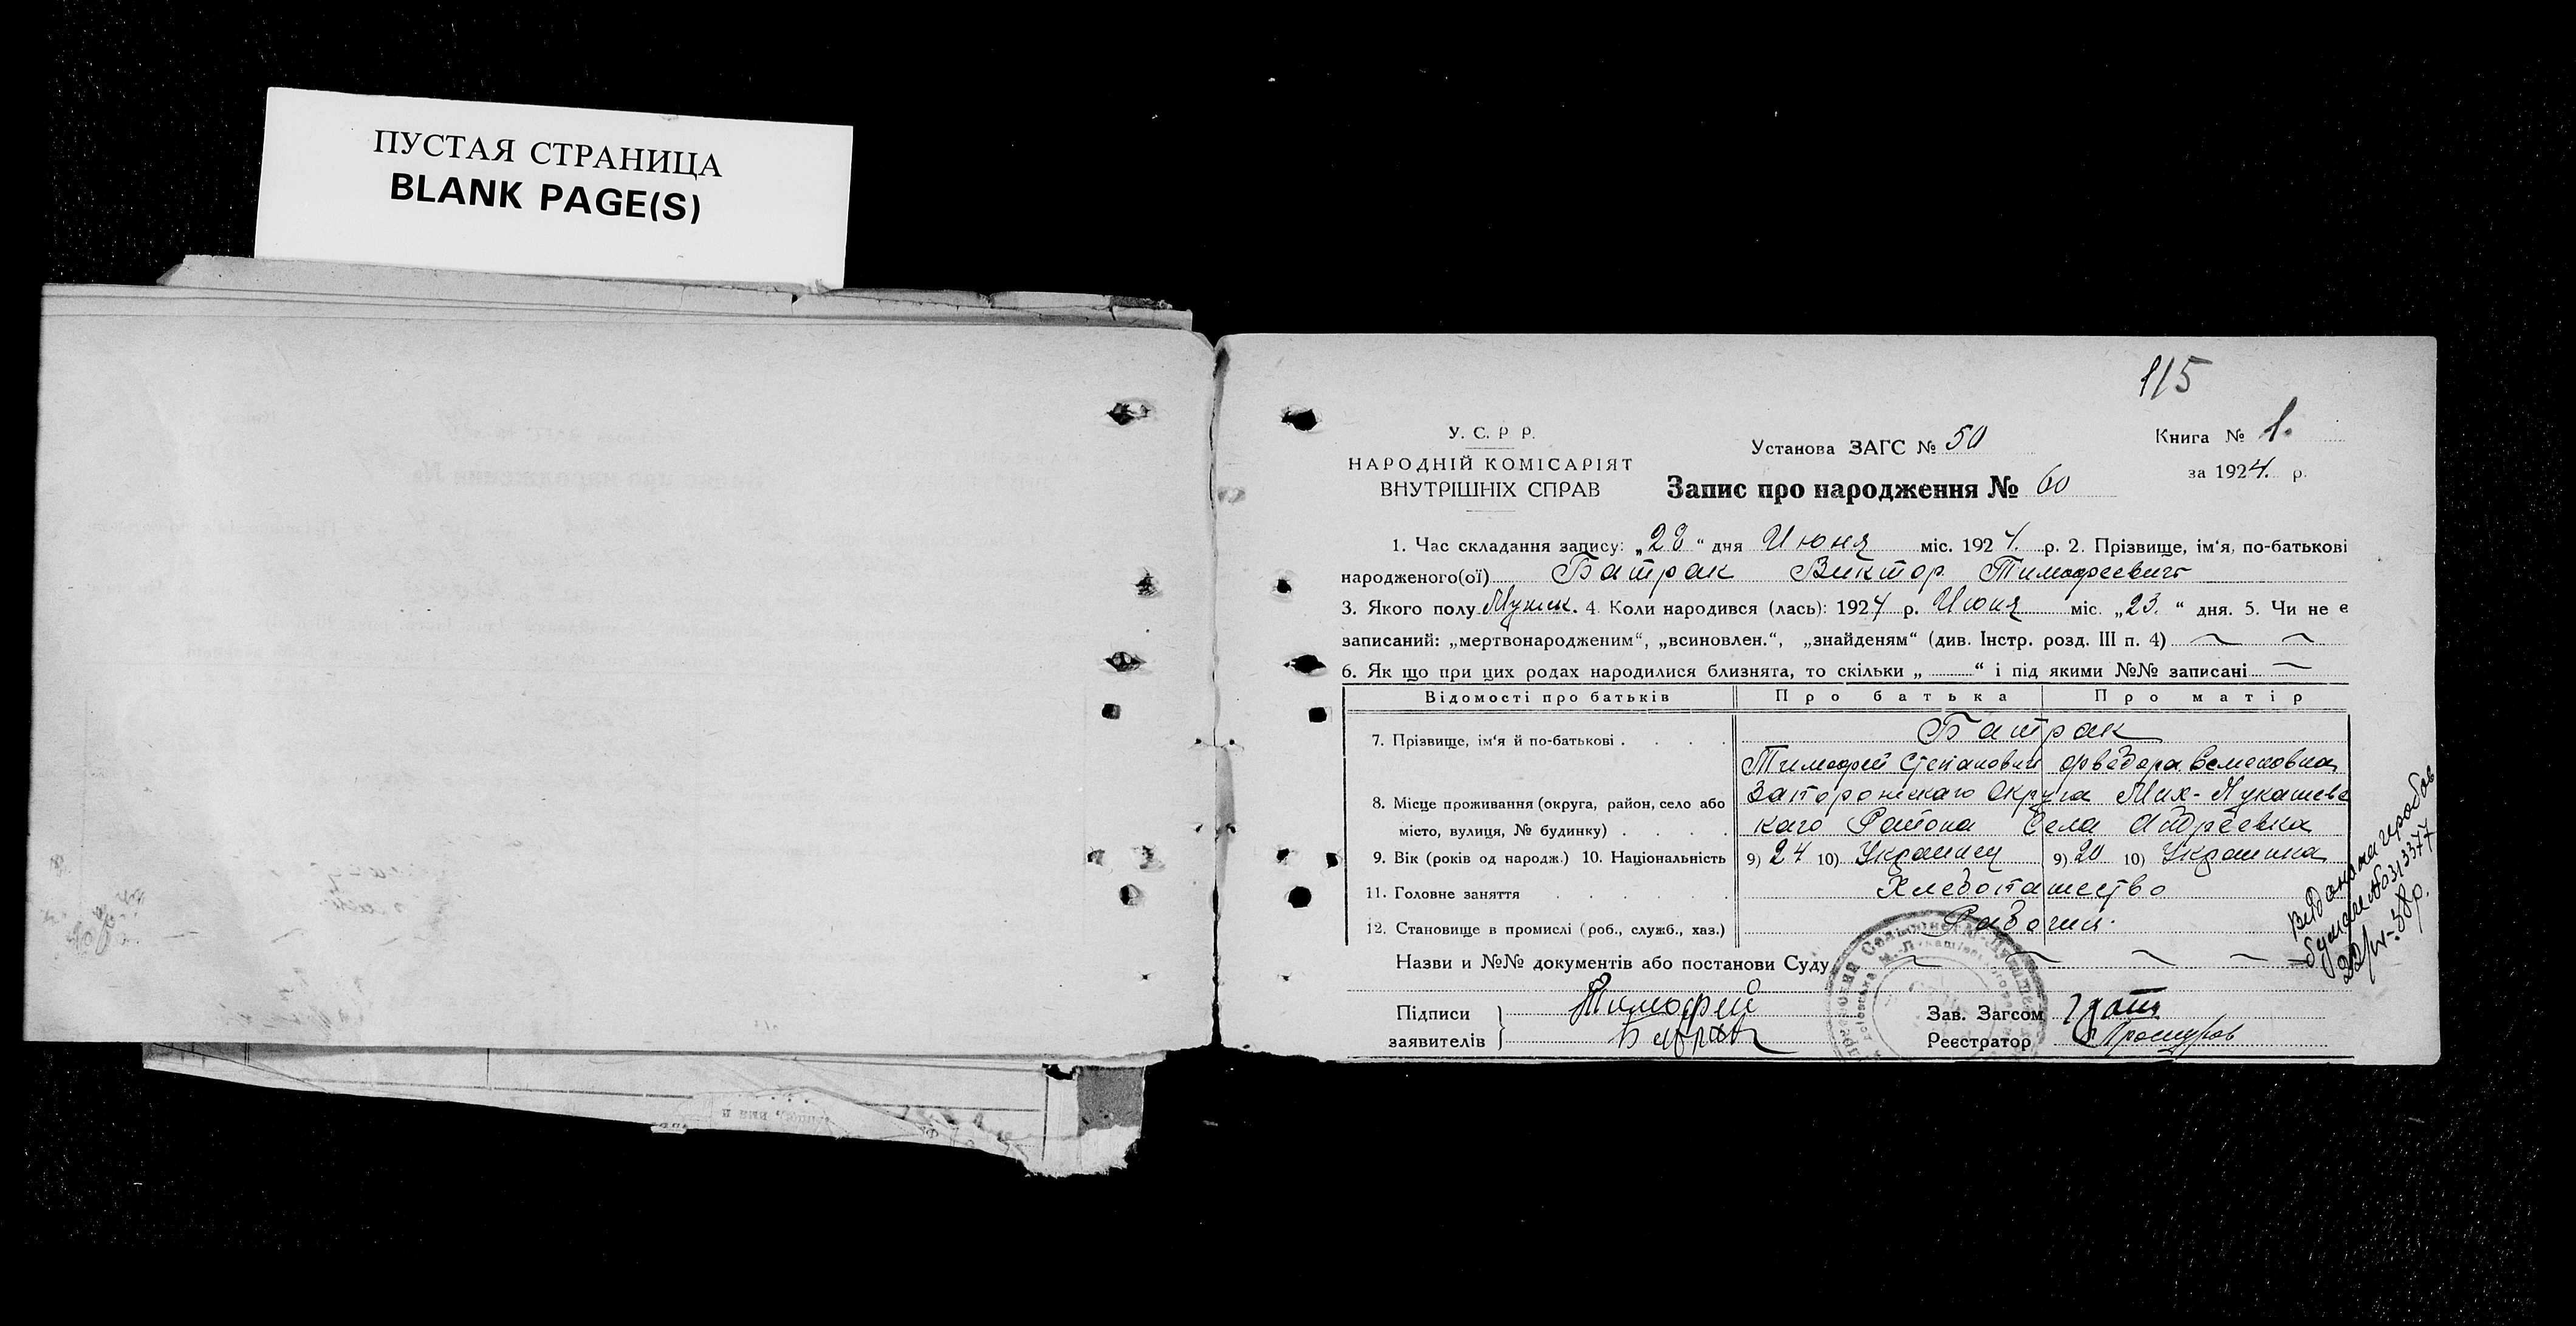 ПУСТАЯ СТРАНИЦА
BLANK PAGE(S)
115
У. С. Р Р.
НАРОДНІЙ КОМІСАРІЯТ
ВНУТРІШНІХ СПРАВ
Установа ЗАГС № 50
Запис про народження № 60
Книга № 1.
за 1924. р.
1. Час складання запису: „28“ дня Июня міс. 1924. р. 2. Прізвище, ім'я, по-батькові
народженого(ої) Батрак Виктор Тимофеевич
3. Якого полу Мужск. 4. Коли народився (лась): 1924 р. Июня міс. „23.“ дня. 5. Чи не є
записаний: „мертвонародженим“, „всиновлен.“, „знайденям“ (див. Інстр. розд. III п. 4)
6. Як що при цих родах народилися близнята, то скільки „ “ і під якими №№ записані
Відомості про батьків Про батька Про матір
7. Прізвище, ім'я й по-батькові . . . . Батрак
Тимофей Степанович Семеновна
8. Місце проживання (округа, район, село або Запорожскаго Округа Мих-Лукашевс
місто, вулиця, № будинку) . . . . каго Района Села Андреевка
9. Вік (років од народж.) 10. Національність 9) 24 10) Украинец 9) 20 10) Украинка
11. Головне заняття . . . . Хлебопашество
12. Становище в промислі (роб., служб., хаз.) Рабочий.
Назви и №№ документів або постанови Суду
Підписи заявителів Тимофей
Батрак
Зав. Загсом
Реєстратор
Видана на гербов
бумаге № 0313377